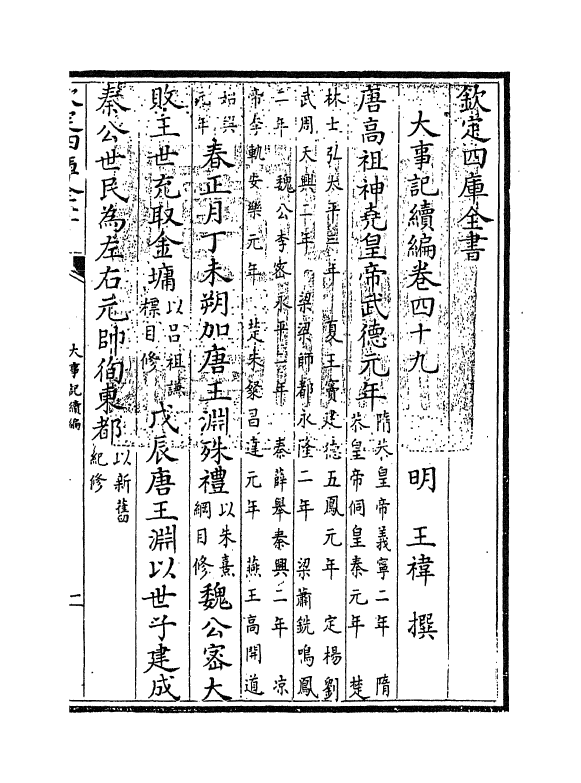 欽定四庫全書
大事記續編卷四十九　明　王禕　撰
唐高祖神堯皇帝武德元年
隋恭皇帝義寧二年　隋
恭皇帝侗皇泰元年　楚
林士弘太平三年　夏王竇建德五鳳元年　定楊劉
武周天興二年　梁梁師都永隆二年　梁蕭銑鳴鳳
二年　魏公李密永平二年　秦薛舉秦興二年　涼
帝李軌安樂元年　楚朱粲昌達元年　燕王高開道
始興
元年
春正月丁未朔加唐王淵殊禮
以朱熹
綱目修
魏公密大
敗王世充取金墉
以呂祖謙
標目修
戊辰唐王淵以世子建成
秦公世民為左右元帥徇東都
以新舊
紀修
大事記續編
二